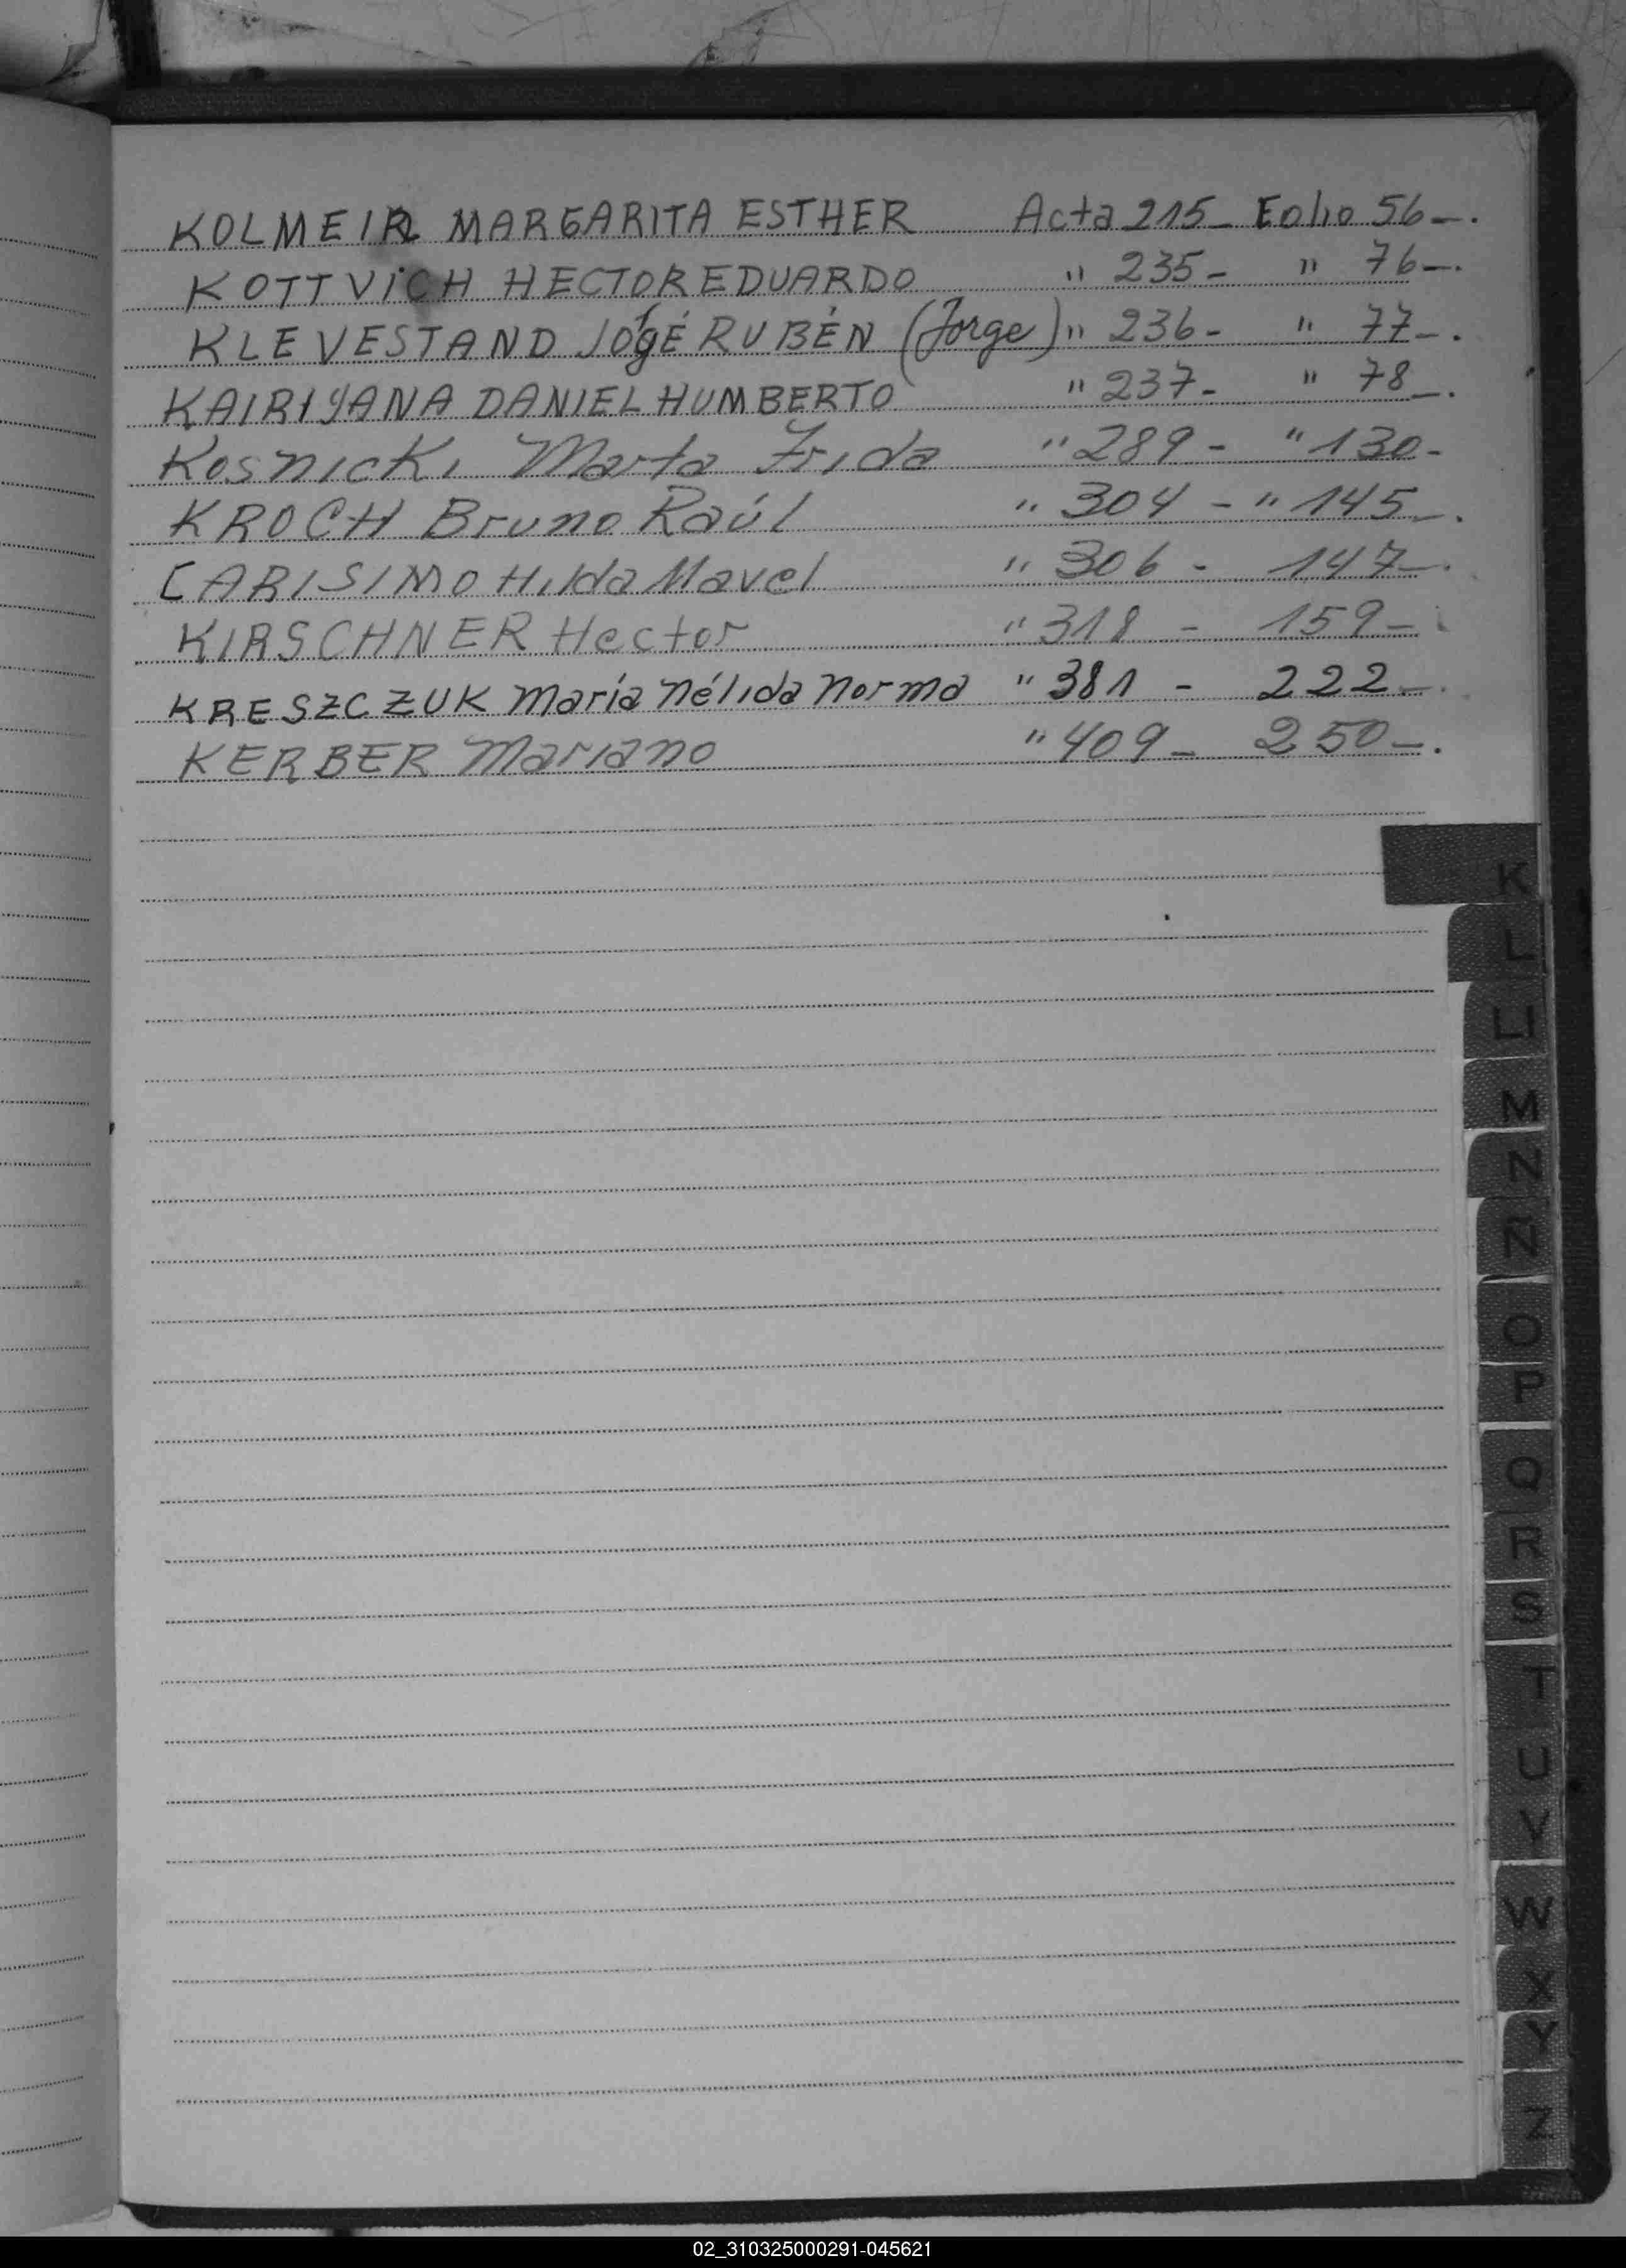 KOLMEIR MARGARITA ESTHER Acta 215- Folio 56-.
KOTTVICH HECTOR EDUARDO " 235- " 76-.
KLEVESTAND JOGÉ RUBÉN (Jorge) " 236- " 77-.
KAIRIYANA DANIEL HUMBERTO " 237- " 78-.
Kosnicki Marta Frida " 289- " 130-
KROCH Bruno Raúl " 304 - " 145-.
CARISIMO Hilda Mavel " 306 - 147-.
KIRSCHNER Hector " 318 - 159-
KRESZCZUK María Nélida Norma " 381 - 222-.
KERBER Mariano " 409- 250-.
K
L
Ll
M
N
Ñ
O
P
Q
R
S
T
U
V
W
X
Y
Z
02_310325000291-045621